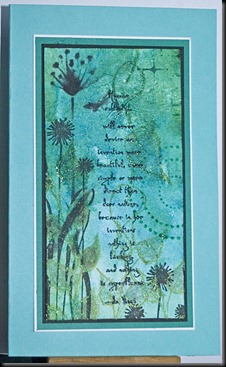 Human
subtlety
will never
devise an
invention more
beautiful, more
simple or more
direct than
does nature,
because in her
inventions
nothing is
lacking
and nothing
is superfluous
da Vinci